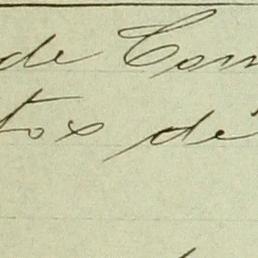 de Com
tox de